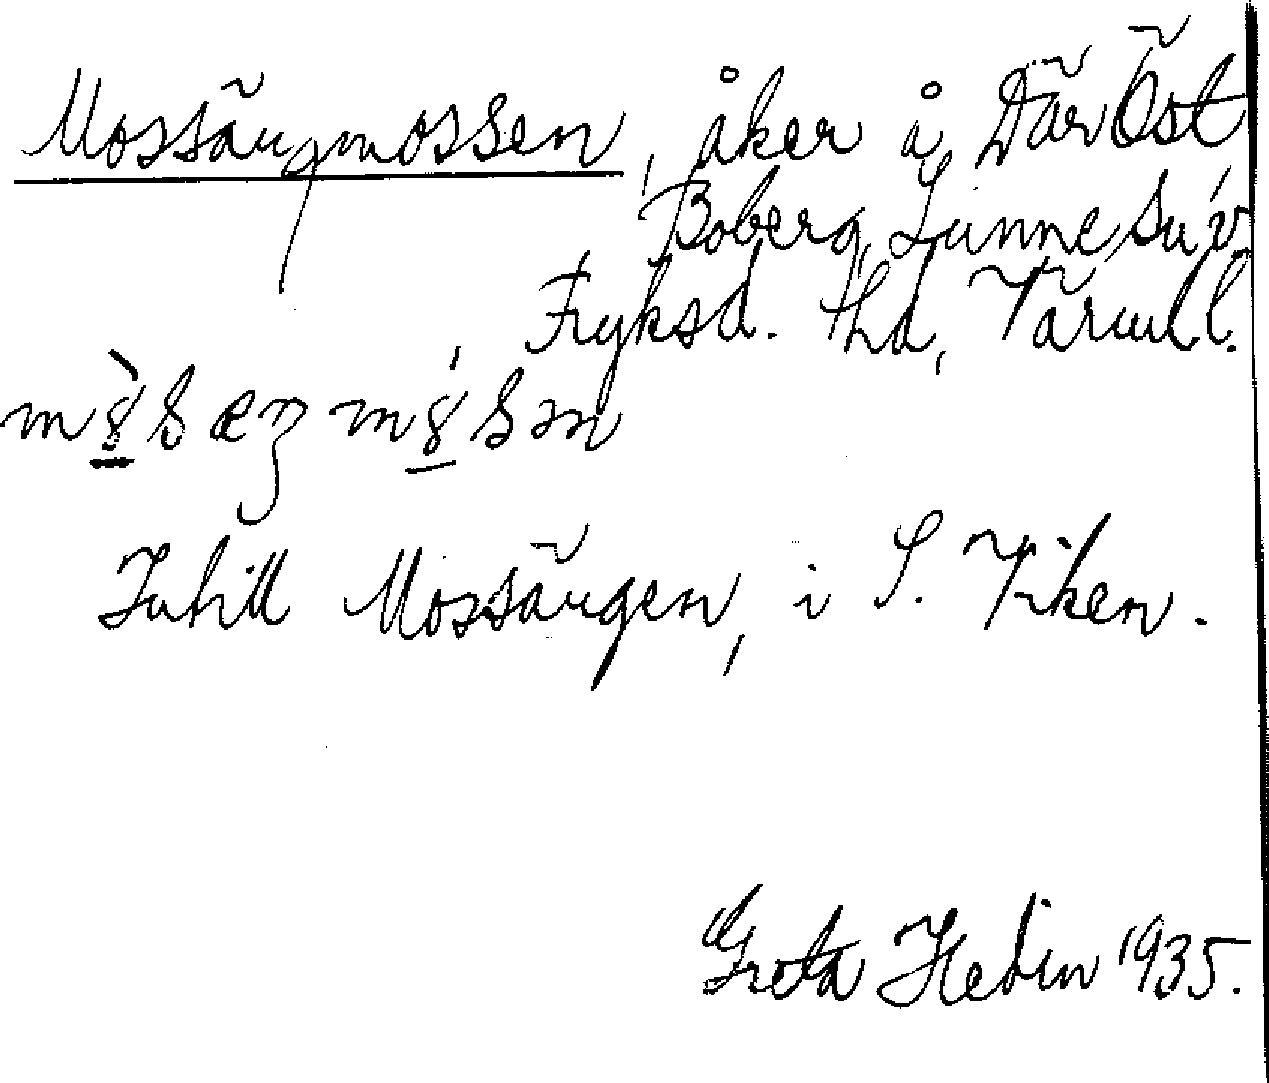 Mossängmossen, åker å Där Öst
Boberg, Sunne sn, v.
Fryksd. hd, Värml.
Intill Mossängen, i S. Viken.
Greta Hedin 1935.